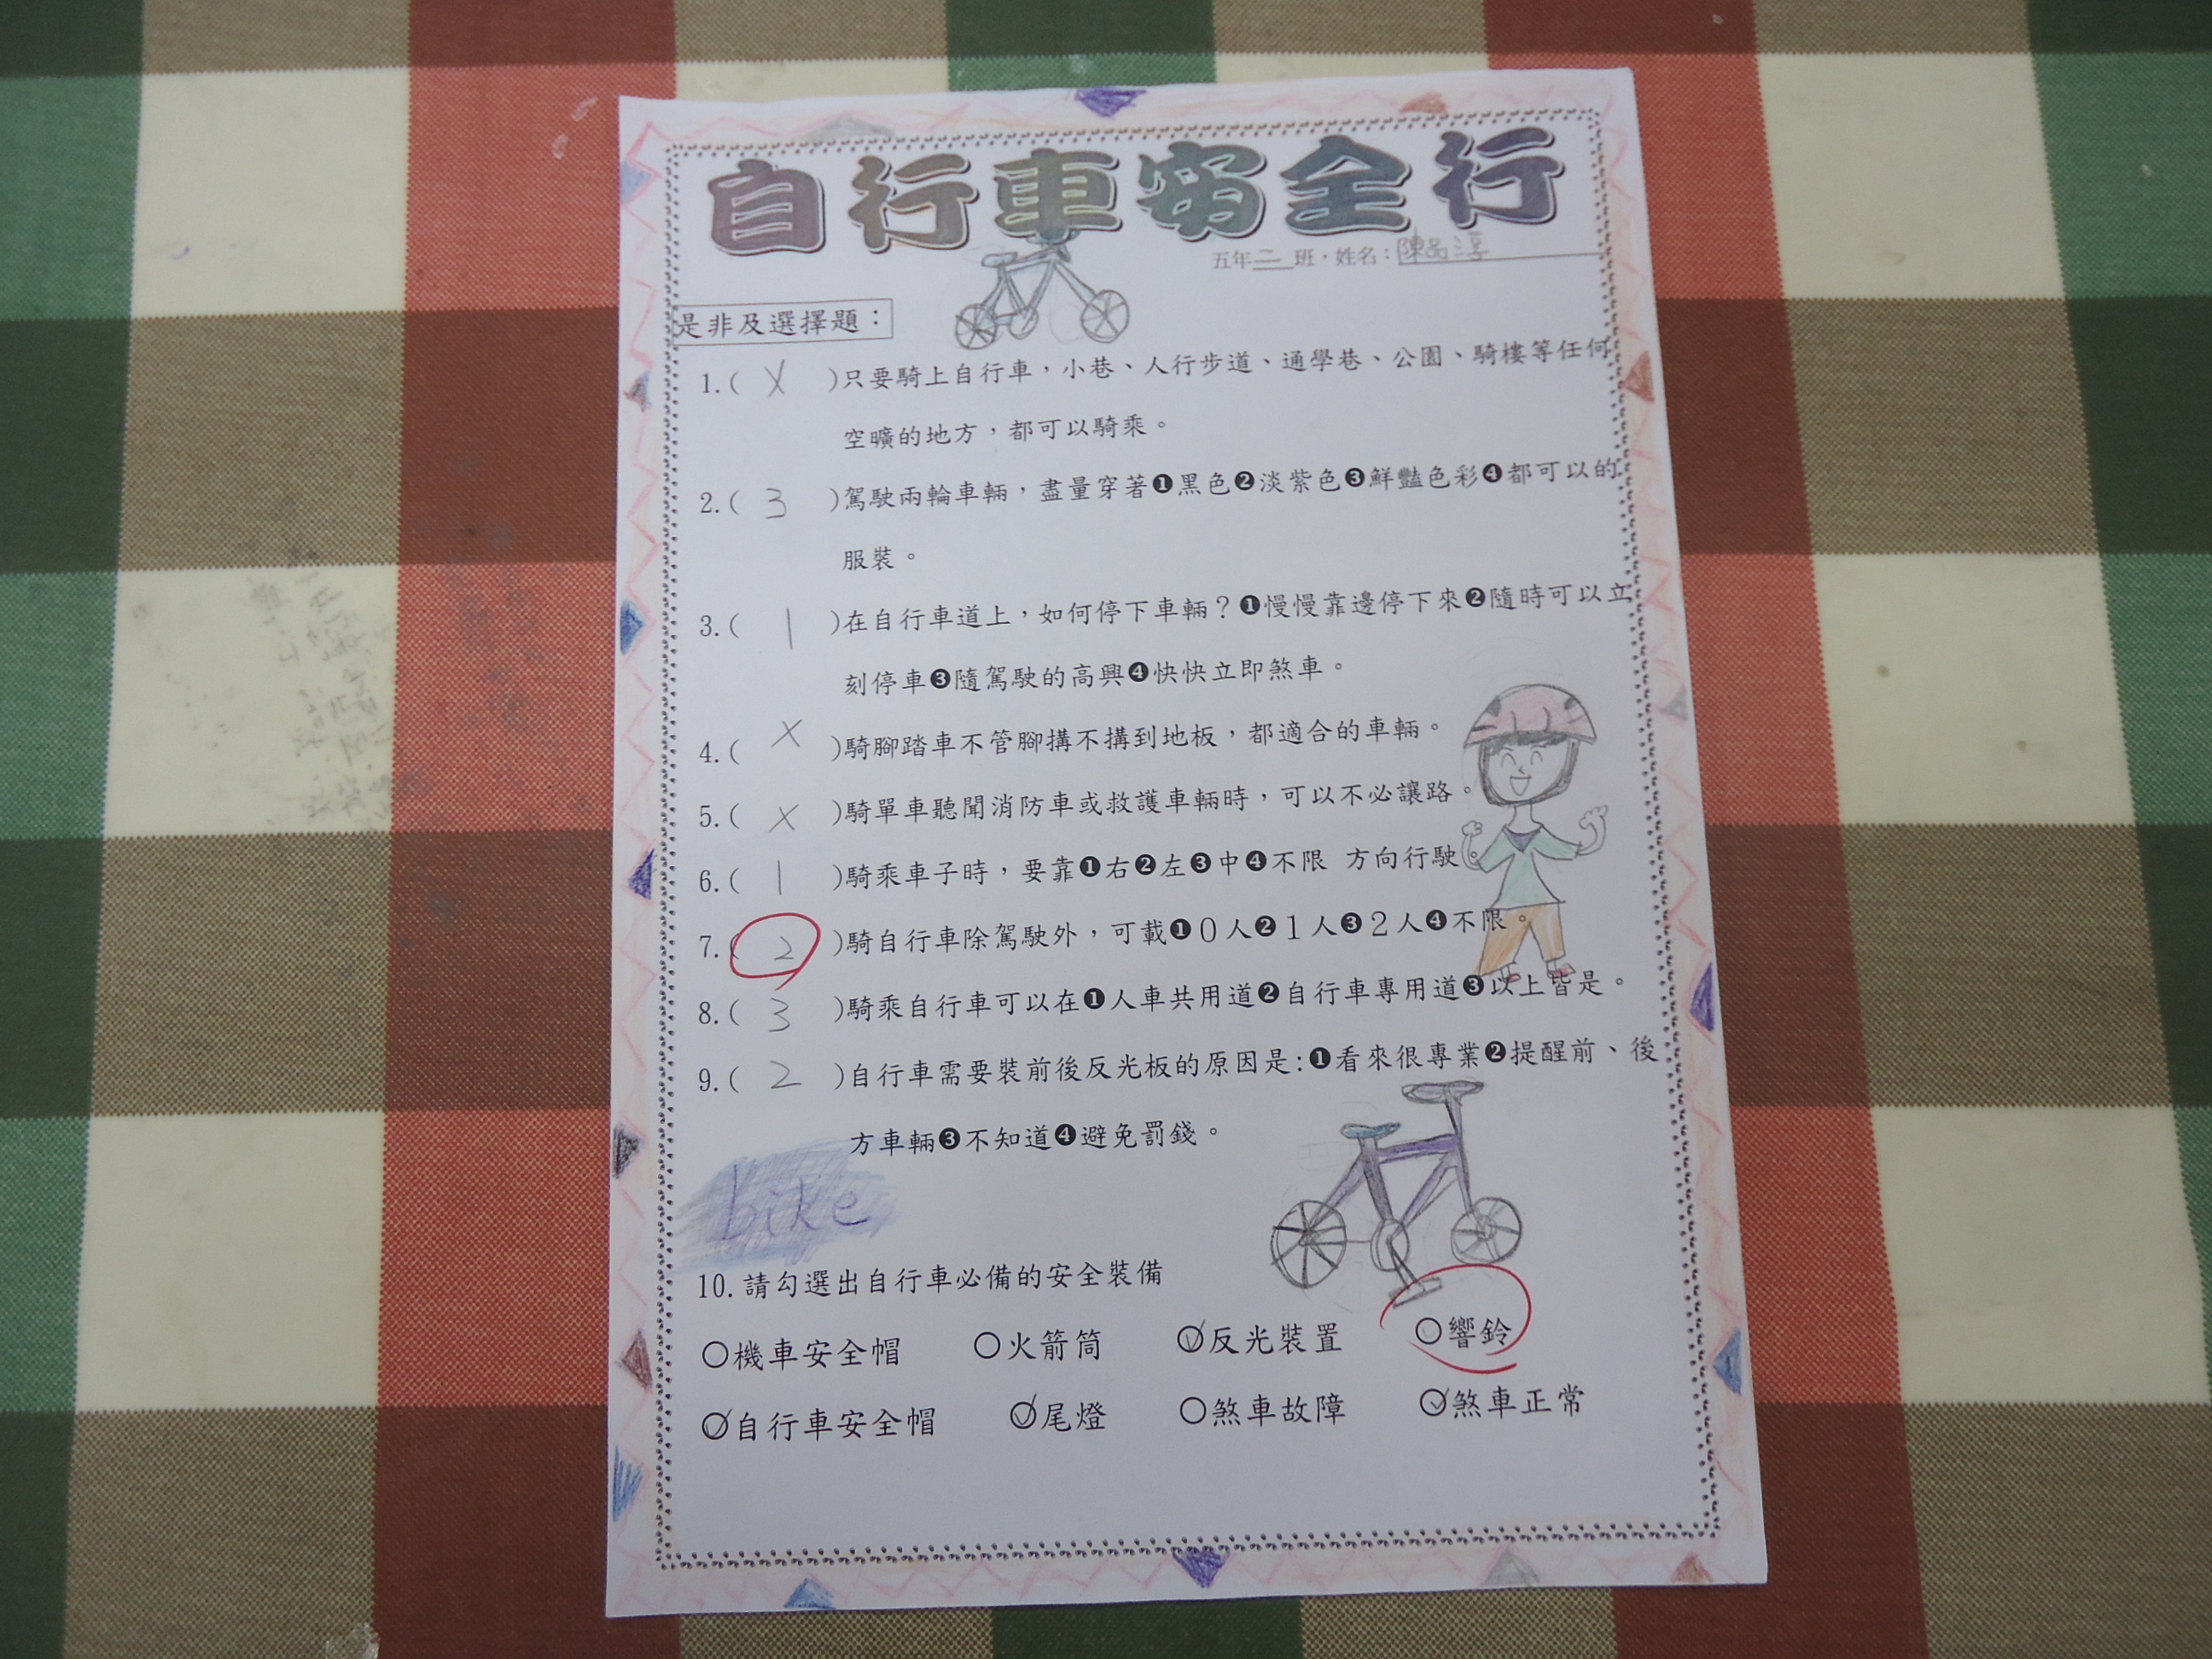 自行車安全行
五年二班，姓名：陳品淳
是非及選擇題：
1.( X )只要騎上自行車，小巷、人行步道、通學巷、公園、騎樓等任何
空曠的地方，都可以騎乘。
2.( 3 )駕駛兩輪車輛，盡量穿著❶黑色❷淡紫色❸鮮豔色彩❹都可以的
服裝。
3.( 1 )在自行車道上，如何停下車輛？❶慢慢靠邊停下來❷隨時可以立
刻停車❸隨駕駛的高興❹快快立即煞車。
4.( X )騎腳踏車不管腳搆不搆到地板，都適合的車輛。
5.( X )騎單車聽聞消防車或救護車輛時，可以不必讓路。
6.( 1 )騎乘車子時，要靠❶右❷左❸中❹不限 方向行駛。
7.( 2 )騎自行車除駕駛外，可載❶0人❷1人❸2人❹不限。
8.( 3 )騎乘自行車可以在❶人車共用道❷自行車專用道❸以上皆是。
9.( 2 )自行車需要裝前後反光板的原因是:❶看來很專業❷提醒前、後
方車輛❸不知道❹避免罰錢。
bike
10.請勾選出自行車必備的安全裝備
○機車安全帽 ○火箭筒 ✓反光裝置 ○響鈴
✓自行車安全帽 ✓尾燈 ○煞車故障 ✓煞車正常